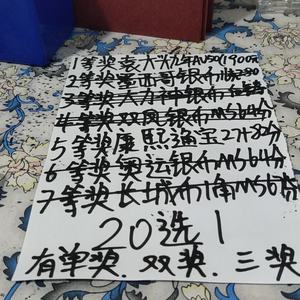 1等奖袁大头九年AU50(1900元
2等奖墨西哥银币
3等奖人力神银币
4等奖双凤银币MS64分
5等奖康熙通宝27+82分
6等奖奥运银币MS64分
7等奖长城币1角MS6分
20选1
有单奖.双奖.三奖